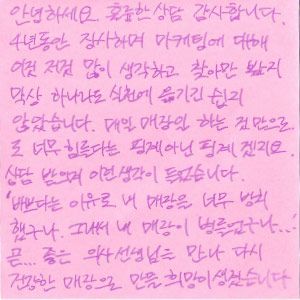 안녕하세요 훌륭한 상담 감사합니다.
4년동안 장사하며 마케팅에 대해
이것 저것 많이 생각하고 찾아만 봤지
막상 하나라도 실천에 옮기긴 쉽지
않았습니다. 매일 매장일 하는 것 만으로
도 너무 힘들다는 핑계아닌 핑계 겠지요.
상담 받으며 이런 생각이 들었습니다.
'바쁘다는 이유로 내 매장을 너무 방치
했구나. 그래서 내 매장이 병들었구나...'
곧... 좋은 의사선생님을 만나 다시
건강한 매장으로 만들 희망이 생겼습니다